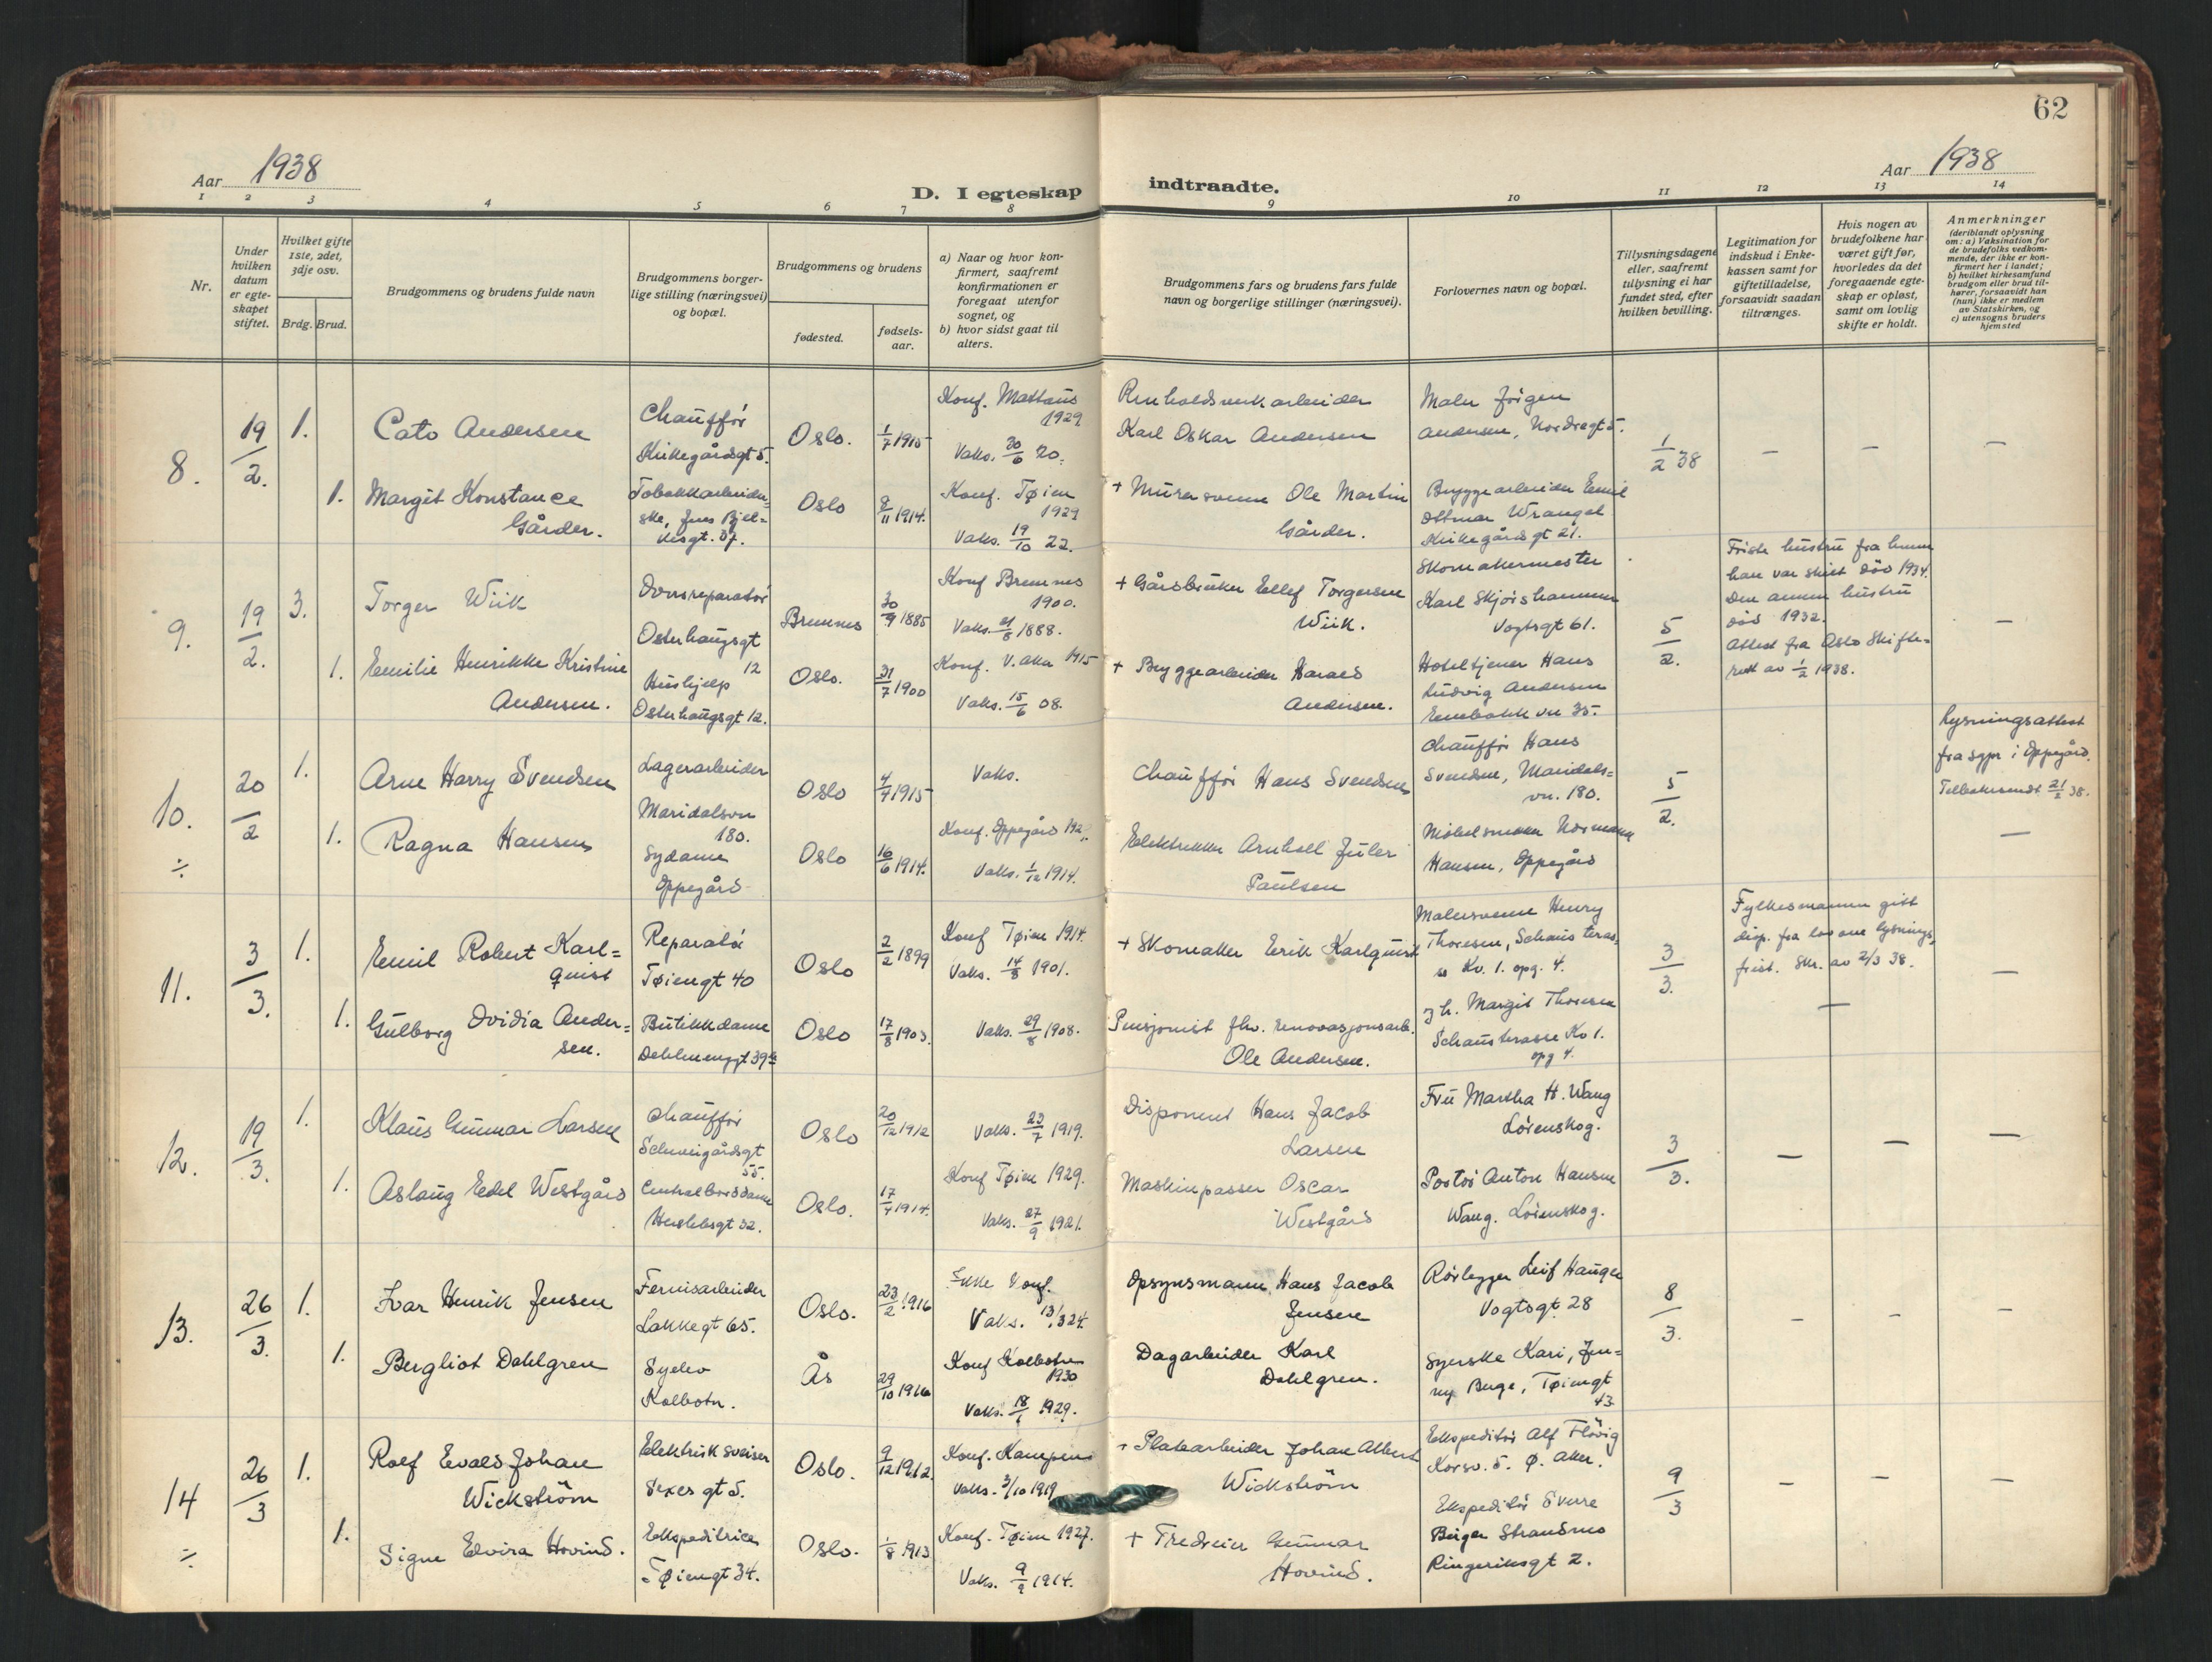 62
Aar 1938
D. I egteskap indtraadte.
Aar 1938
1 2 3 4 5 6 7 8 9 10 11 12 13 14
Nr.
Under hvilken datum er egteskapet stiftet.
Hvilket gifte 1ste, 2det, 3dje osv.
Brdg. Brud.
Brudgommens og brudens fulde navn
Brudgommens borgerlige stilling (næringsvei) og bopæl.
Brudgommens og brudens
fødested.
fødselsaar.
a) Naar og hvor konfirmert, saafremt konfirmationen er foregaat utenfor sognet, og
b) hvor sidst gaat til alters.
Brudgommens fars og brudens fars fulde navn og borgerlige stillinger (næringsvei).
Forlovernes navn og bopæl.
Tillysningsdagene eller, saafremt tillysning ei har fundet sted, efter hvilken bevilling.
Legitimation for indskud i Enkekassen samt for giftetilladelse, forsaavidt saadan tiltrænges.
Hvis nogen av brudefolkene har været gift før, hvorledes da det foregaaende egteskap er opløst, samt om lovlig skifte er holdt.
Anmerkninger (deriblandt oplysning om: a) Vaksination for de brudefolks vedkommende, der ikke er konfirmert her i landet; b) hvilket kirkesamfund brudgom eller brud tilhører, forsaavidt han (hun) ikke er medlem av Statskirken, og c) utensogns bruders hjemsted
8. 19/2. 1.
Cato Andersen
Chauffør
Kirkegårdsgt 5.
Oslo. 1/7 1915
Konf. Mattæus
1929
Vaks. 30/6 20.
Renholdsverkarbeider
Karl Oskar Andersen
Maler Jørgen
Andersen, Nordregt 5.
1/2 38
— — —
1. Margit Konstance
Gårder.
Tobakkarbeider=
ske, Jens Bjel=
kesgt. 37.
Oslo 9/11 1914.
Konf. Tøien
1929
Vaks. 19/10 22.
+ Murersvenn Ole Martin
Gårder.
Bryggearbeider Emil
Ottmar Wrangel
Kirkegårdsgt 21.
9. 19/2. 3.
Torger Wiik
Ovnsreparatør
Osterhaugsgt
12
Bremnes 30/9 1885
Konf Bremnes
1900.
Vaks. 21/8 1888.
+ Gårdbruker Ellef Torgersen
Wiik.
Skomakermester
Karl Skjørshammer
Vogtsgt 61.
5/2.
Første hustru fra hvem
han var skilt død 1934.
Den annen hustru
død 1932.
Attest fra Oslo Skifte=
rett av 1/2 1938.
—
1. Emilie Henrikke Kristine
Andersen.
Hushjelp
Osterhaugsgt 12.
Oslo. 31/7 1900
Konf. V. Aker 1915
Vaks. 15/6 08.
+ Bryggearbeider Harald
Andersen.
Hoteltjener Hans
Ludvig Andersen
Enebakk vn 35.
10. 20/2 1.
÷
Arne Harry Svendsen
Lagerarbeider
Maridalsvn
180.
Oslo 4/4 1915
Vaks.
Chauffør Hans Svendsen
Chauffør Hans
Svendsen, Maridals=
vn. 180.
5/2.
Lysningsattest
fra sgpr i Oppegård.
Tilbakesendt 21/2 38.
—
1. Ragna Hansen
Sydame
Oppegård
Oslo 16/6 1914.
Konf. Oppegård
Vaks. 1/12 1914.
Elektriker Arnhell Juler
Paulsen
Møbelsnekker Normann
Hansen, Oppegård
11. 3/3. 1.
Emil Robert Karl=
quist
Reparatør
Tøiengt 40
Oslo 2/2 1899
Konf Tøien 1914.
Vaks. 14/8 1901.
+ Skomaker Erik Karlquist
Malersvenn Henry
Thoresen, Schaus teras=
se Kv. 1. opg. 4.
3/3.
Fylkesmannen gitt
disp. fra lovens lysnings=
frist. Skr. av 2/3 38.
— —
1. Gulborg Ovidia Ander=
sen.
Butikkdame
Dehlenenggt 39
Oslo 17/8 1903.
Vaks. 29/8 1908.
Pensjonist fhv. renovasjonsarb.
Ole Andersen.
Margit Thoresen
Schausterasse Kv 1.
opg 4.
12. 19/3. 1.
Klaus Gunnar Larsen
Chauffør
Schweigårdsgt
55.
Oslo 20/12 1912
Vaks. 23/7 1919.
Disponent Hans Jacob
Larsen
Fru Martha H. Wang
Lørenskog.
3/3.
— — —
1. Aslaug Edel Westgård
Centralborddame
Herslebsgt 32.
Oslo. 17/4 1914.
Konf Tøien 1929.
Vaks. 27/9 1921.
Maskinpasser Oscar
Westgård
Anton Hansen
Wang. Lørenskog.
13. 26/3. 1.
Ivar Henrik Jensen
Fernisarbeider
Lakkegt 65.
Oslo. 23/2 1916
Ikke Konf.
Vaks. 13/3 24.
Opsynsmann Hans Jacob
Jensen
Rørlegger Leif Haugen
Vogtsgt 28
8/3.
— — —
1. Bergliot Dahlgren
Syelev
Kolbotn.
Ås 29/10 1916
Konf Kolbotn
1930
Vaks. 18/6 1929.
Dagarbeider Karl
Dahlgren.
Syerske Kari, Jen=
ny Berge, Tøiengt
43
14 26/3 1.
÷
Rolf Evald Johan
Wickstrøm
Elektrisk sveiser
Sexes gt 5.
Oslo. 9/12 1912
Konf. Kampen
Vaks. 3/10 1919
+ Platearbeider Johan Albert
Wickstrøm
Ekspeditør Alf Fløvig
Korsv. 5. Ø. Aker.
9/3
— — —
1. Signe Elvira Hovind.
Ekspeditrice
Tøiengt 34.
Oslo. 1/8 1913
Konf. Tøien 1927.
Vaks. 9/9 1914.
+ Gunnar
Hovind.
Ekspeditør Sverre
Birger Strandmo
Ringeriksgt 2.